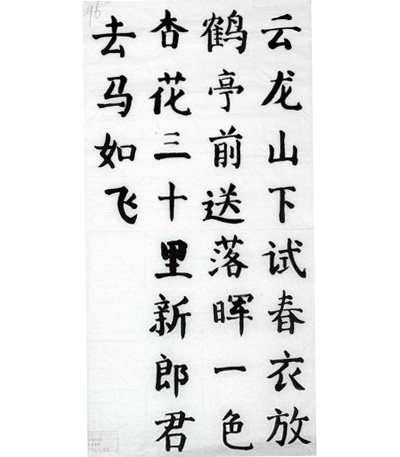 云龙山下试春衣放
鹤亭前送落晖一色
杏花三十里新郎君
去马如飞
96